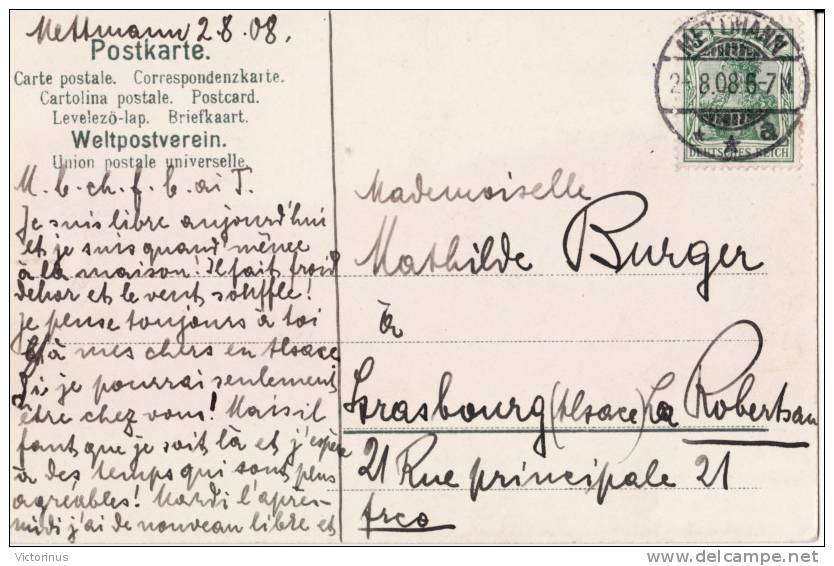 Mettmann 2.8.08.
Postkarte.
Carte postale. Correspondenzkarte.
Cartolina postale. Postcard.
Levelezö-lap. Briefkaart.
Weltpostverein.
Union postale universelle.
METTMANN
2. 8.08.6-7N.
* a
DEUTSCHES REICH
M. b. ch. f. b. ai T.
Je suis libre aujourd'hui
et je suis quand même
à la maison! Il fait froid
dehor et le vent souffle!
Je pense toujours à toi
et à mes chers en Alsace
Si je pourrai seulement
être chez vous! Mais il
faut que je soit là et j'espère
à des temps qui sont plus
agréables! Mardi l'après-
midi j'ai de nouveau libre et
Mademoiselle
Mathilde Burger
à
Strasbourg (Alsace) La Robertsau
21 Rue principale 21
frco
Victorinus
delcampe.net